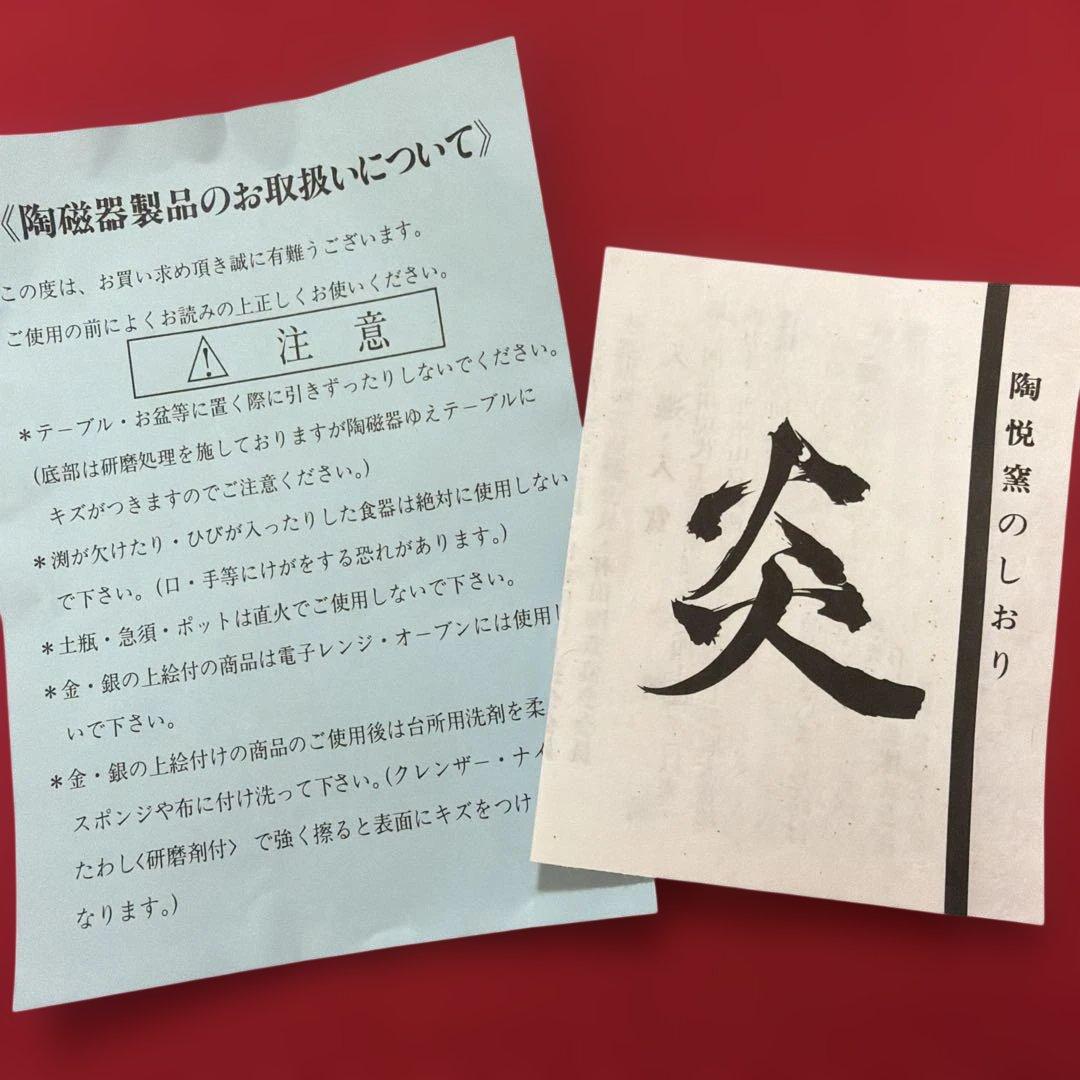 《陶磁器製品のお取扱いについて》
この度は、お買い求め頂き誠に有難うございます。
ご使用の前によくお読みの上正しくお使いください。
注意
＊テーブル・お盆等に置く際に引きずったりしないでください。
(底部は研磨処理を施しておりますが陶磁器ゆえテーブルに
キズがつきますのでご注意ください。)
＊渕が欠けたり・ひびが入ったりした食器は絶対に使用しない
で下さい。(口・手等にけがをする恐れがあります。)
＊土瓶・急須・ポットは直火でご使用しないで下さい。
＊金・銀の上絵付の商品は電子レンジ・オーブンには使用し
いで下さい。
＊金・銀の上絵付けの商品のご使用後は台所用洗剤を柔
スポンジや布に付け洗って下さい。(クレンザー・ナイ
たわし〈研磨剤付〉 で強く擦ると表面にキズをつけ
なります。)
陶悦窯のしおり
炎